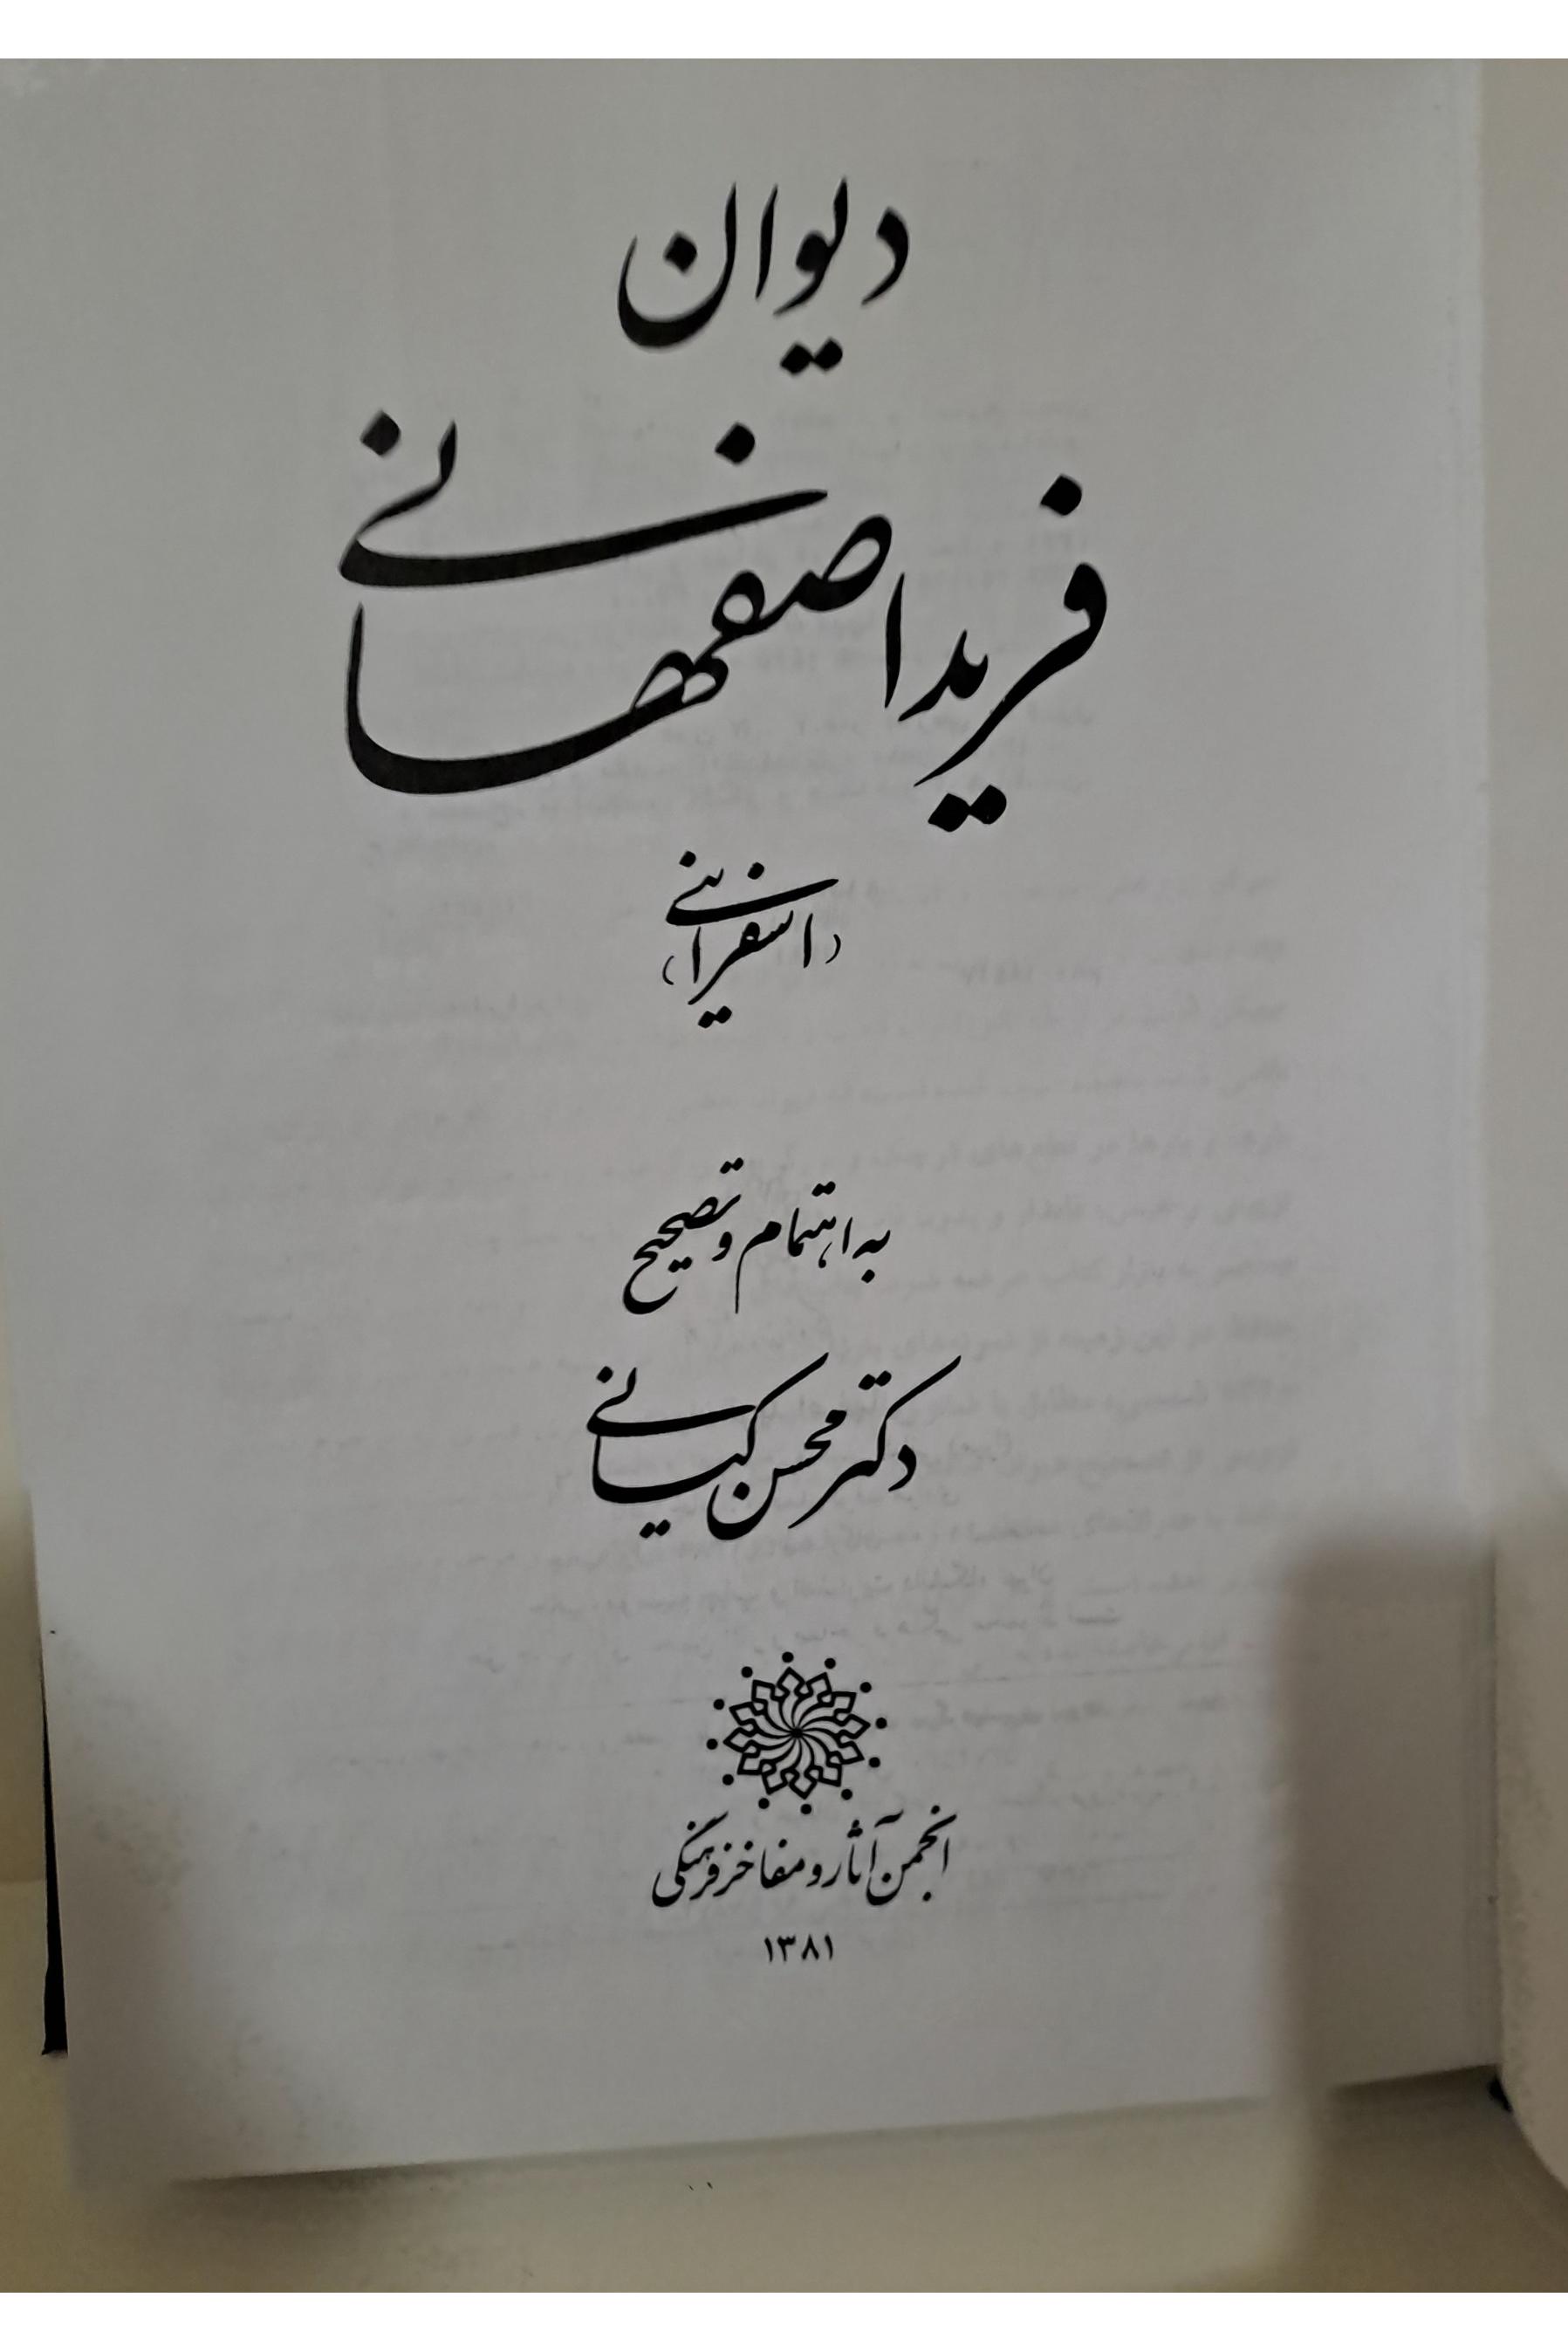 دیوان
فرید اصفهانی
(اسفراینی)
به اهتمام و تصحیح
دکتر محسن کیانی
انجمن آثار و مفاخر فرهنگی
۱۳۸۱